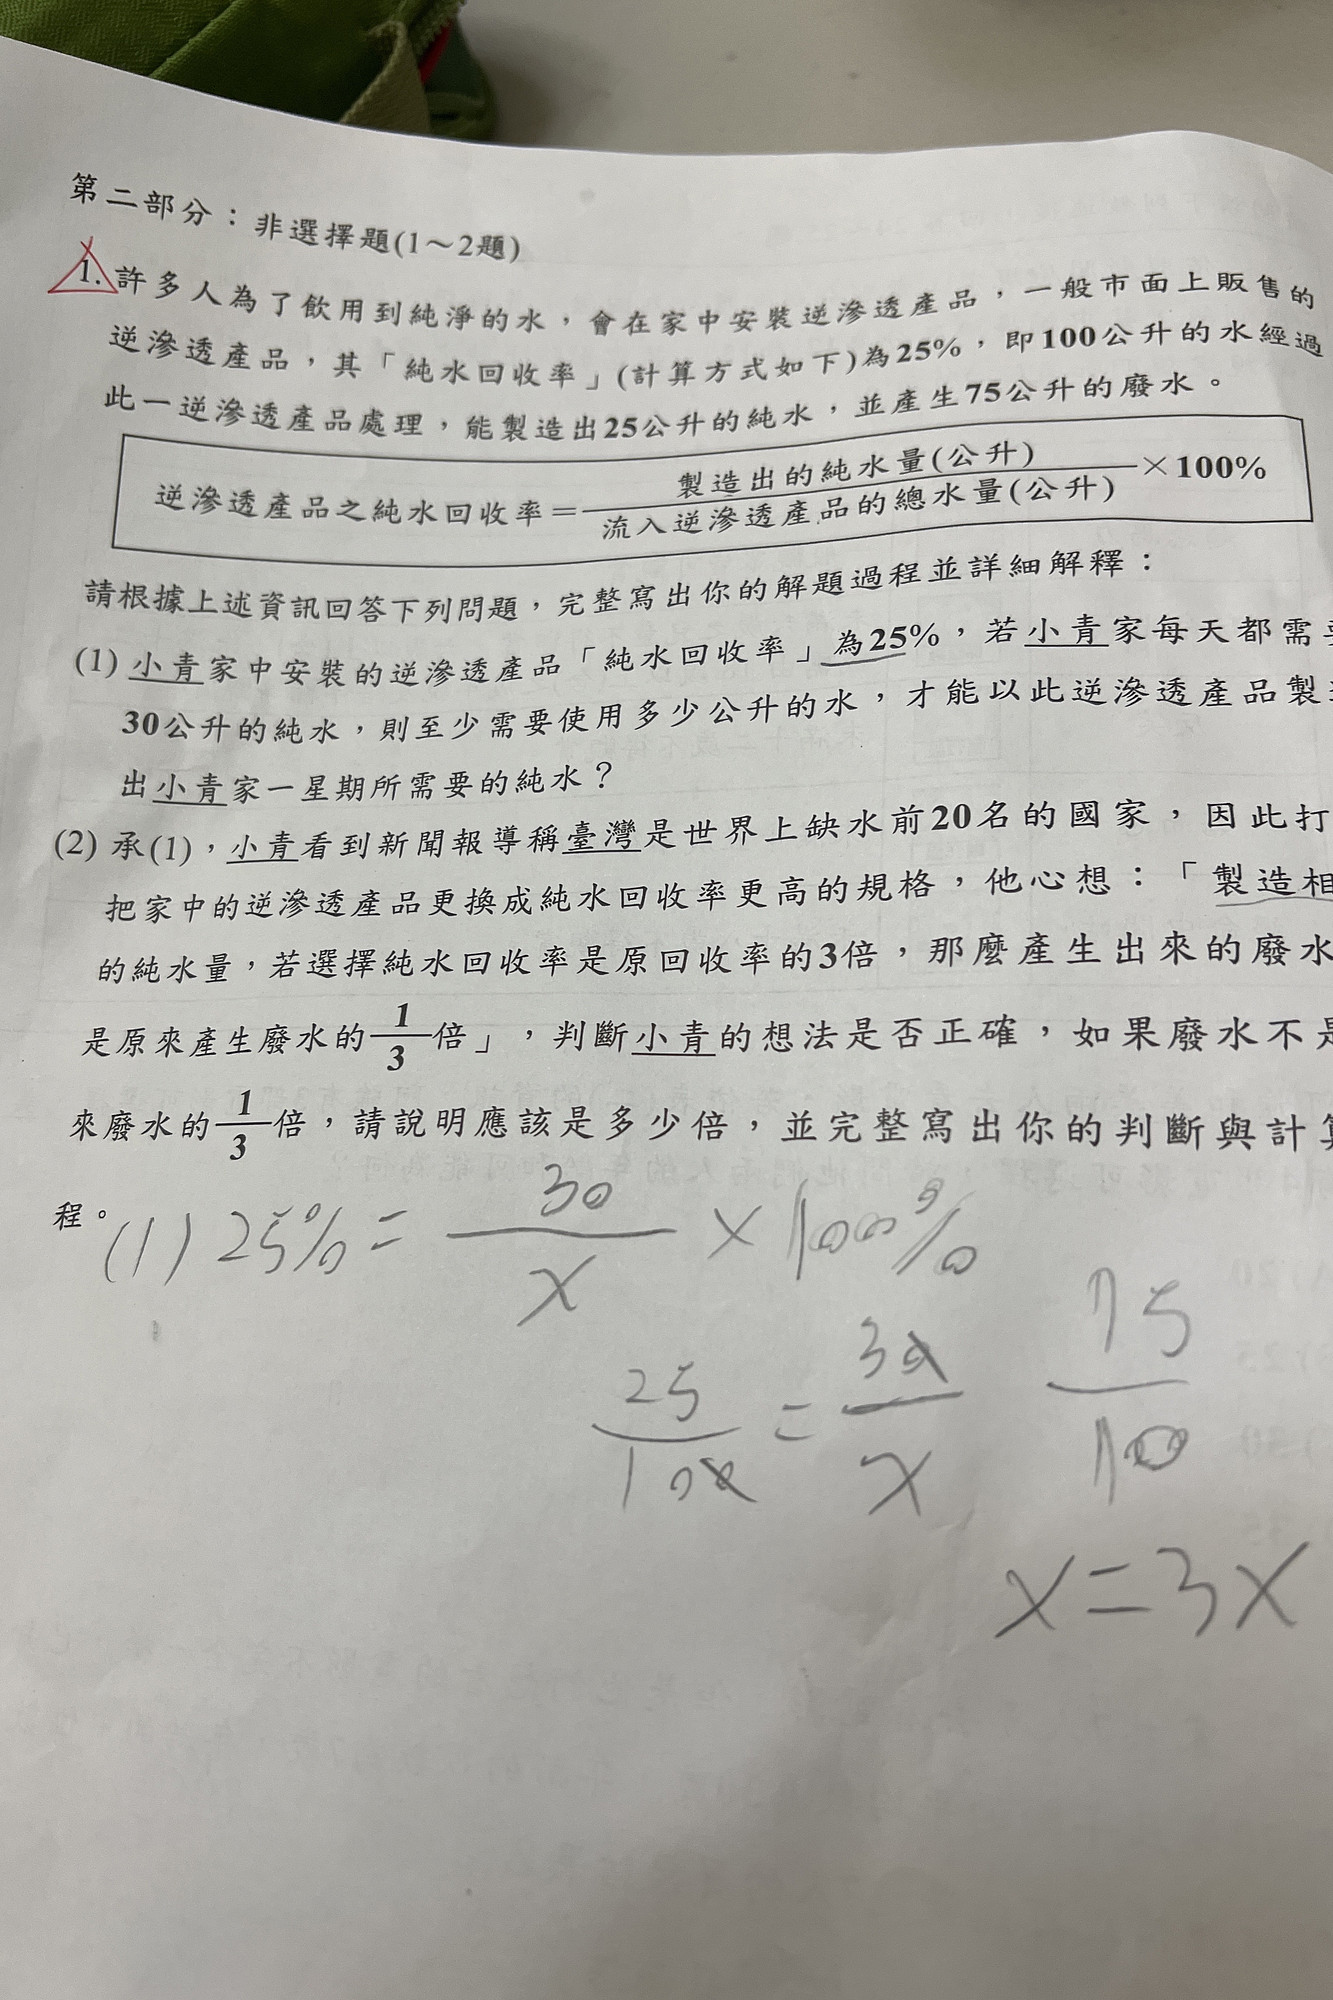 第二部分：非選擇題(1～2題)
1. 許多人為了飲用到純淨的水，會在家中安裝逆滲透產品，一般市面上販售的
逆滲透產品，其「純水回收率」(計算方式如下)為25%，即100公升的水經過
此一逆滲透產品處理，能製造出25公升的純水，並產生75公升的廢水。
逆滲透產品之純水回收率＝製造出的純水量(公升)/流入逆滲透產品的總水量(公升)×100%
請根據上述資訊回答下列問題，完整寫出你的解題過程並詳細解釋：
(1) 小青家中安裝的逆滲透產品「純水回收率」為25%，若小青家每天都需
30公升的純水，則至少需要使用多少公升的水，才能以此逆滲透產品製
出小青家一星期所需要的純水？
(2) 承(1)，小青看到新聞報導稱臺灣是世界上缺水前20名的國家，因此打
把家中的逆滲透產品更換成純水回收率更高的規格，他心想：「製造相
的純水量，若選擇純水回收率是原回收率的3倍，那麼產生出來的廢水
是原來產生廢水的1/3倍」，判斷小青的想法是否正確，如果廢水不是
來廢水的1/3倍，請說明應該是多少倍，並完整寫出你的判斷與計
程。
(1) 25% = 30/x × 100%
25/100 = 30/x 75/10
x=3x